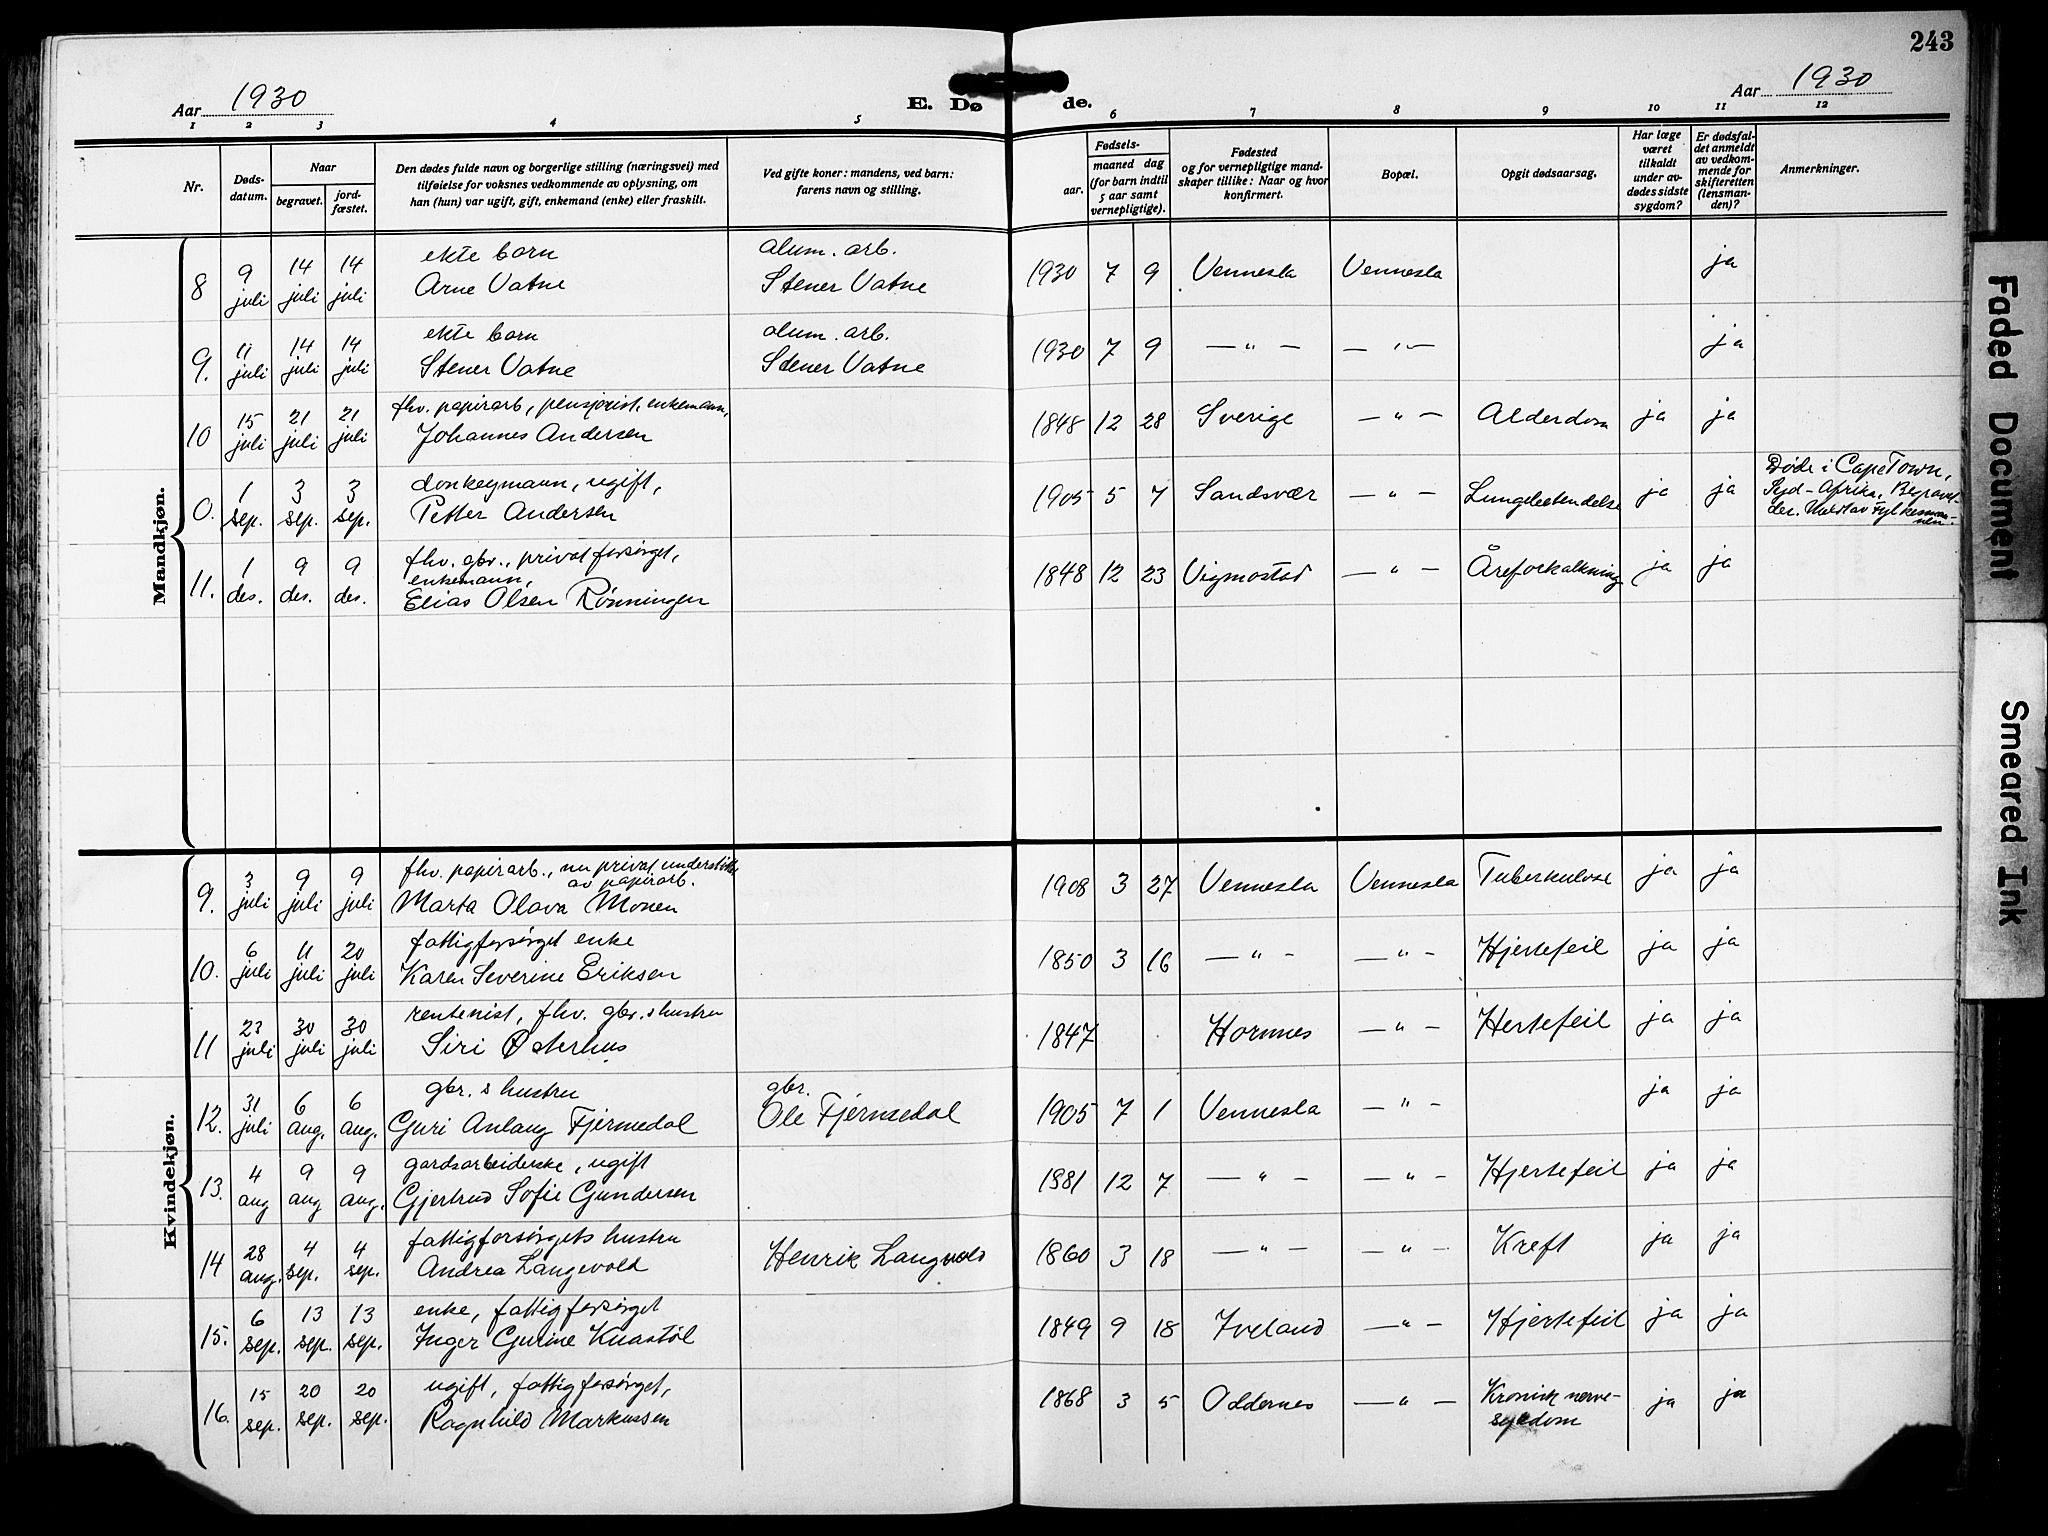 243
Aar 1930
E. Dø de.
Aar 1930
1 2 3 4 5 6 7 8 9 10 11 12
Nr.
Døds-
datum.
Naar
begravet.
jord-
fæstet.
Den dødes fulde navn og borgerlige stilling (næringsvei) med
tilføielse for voksnes vedkommende av oplysning, om
han (hun) var ugift, gift, enkemand (enke) eller fraskilt.
Ved gifte koner: mandens, ved barn:
farens navn og stilling.
Fødsels-
aar.
maaned dag
(for barn indtil
5 aar samt
vernepligtige).
Fødested
og for vernepligtige mand-
skaper tillike: Naar og hvor
konfirmert.
Bopæl.
Opgit dødsaarsag.
Har læge
været
tilkaldt
under av-
dødes sidste
sygdom?
Er dødsfal-
det anmeldt
av vedkom-
mende for
skifteretten
(lensman-
den)?
Anmerkninger.
Mandkjøn.
ekte barn alum. arb.
8 9 juli 14 juli 14 juli Arne Vatne Stener Vatne 1930 7 9 Vennesla Vennesla ja
ekte barn alum. arb.
9. 11 juli 14 juli 14 juli Stener Vatne Stener Vatne 1930 7 9 — " — — " — ja
fhv. papirarb, pensjonist, enkemann,
10 15 juli 21 juli 21 juli Johannes Andersen 1848 12 28 Sverige — " — Alderdom ja ja
donkeymann, ugift,
0. 1 sep. 3 sep. 3 sep. Petter Andersen 1905 5 7 Sandsvær — " — Lungebetendelse ja ja
Døde i Cape Town,
Syd-Afrika. Begravet
der. Meldt av Fylkesman-
nen.
fhv. gbr., privat forsörget,
enkemann,
11. 1 des. 9 des. 9 des. Elias Olsen Rönningen 1848 12 23 Vigmostad — " — Åreforkalkning ja ja
Kvindekjøn.
fhv. papirarb., nu privat understöttet
av papirarb.
9. 3 juli 9 juli 9 juli Marta Olava Monen 1908 3 27 Vennesla Vennesla Tuberkulose ja ja
fattigforsörget enke
10. 6 juli 11 juli 20 juli Karen Severine Eriksen 1850 3 16 — " — — " — Hjertefeil ja ja
rentenist, fhv. gbr.s hustru
11 23 juli 30 juli 30 juli Siri Østerhus 1847 Hornnes — " — Hertefeil ja ja
gbr. s hustru gbr.
12. 31 juli 6 aug. 6 aug. Guri Anlaug Fjermedal Ole Fjermedal 1905 7 1 Vennesla — " — ja ja
gardsarbeiderske, ugift
13. 4 aug 9 aug 9 aug. Gjertrud Sofie Gundersen 1881 12 7 — " — — " — Hjertefeil ja ja
fattigforsörgets hustru
14 28 aug. 4 sep. 4 sep. Andrea Langevold Henrik Langvold 1860 3 18 — " — — " — Kreft ja ja
enke, fattigforsörget
15. 6 sep. 13 sep. 13 sep. Inger Gurine Knastöl 1849 9 18 Iveland — " — Hjertefeil ja ja
ugift, fattigforsörget,
16. 15 sep. 20 sep. 20 sep. Ragnhild Markussen 1868 3 5 Oddernes — " — Kronisk nerve-
sykdom ja ja
Faded Document
Smeared Ink